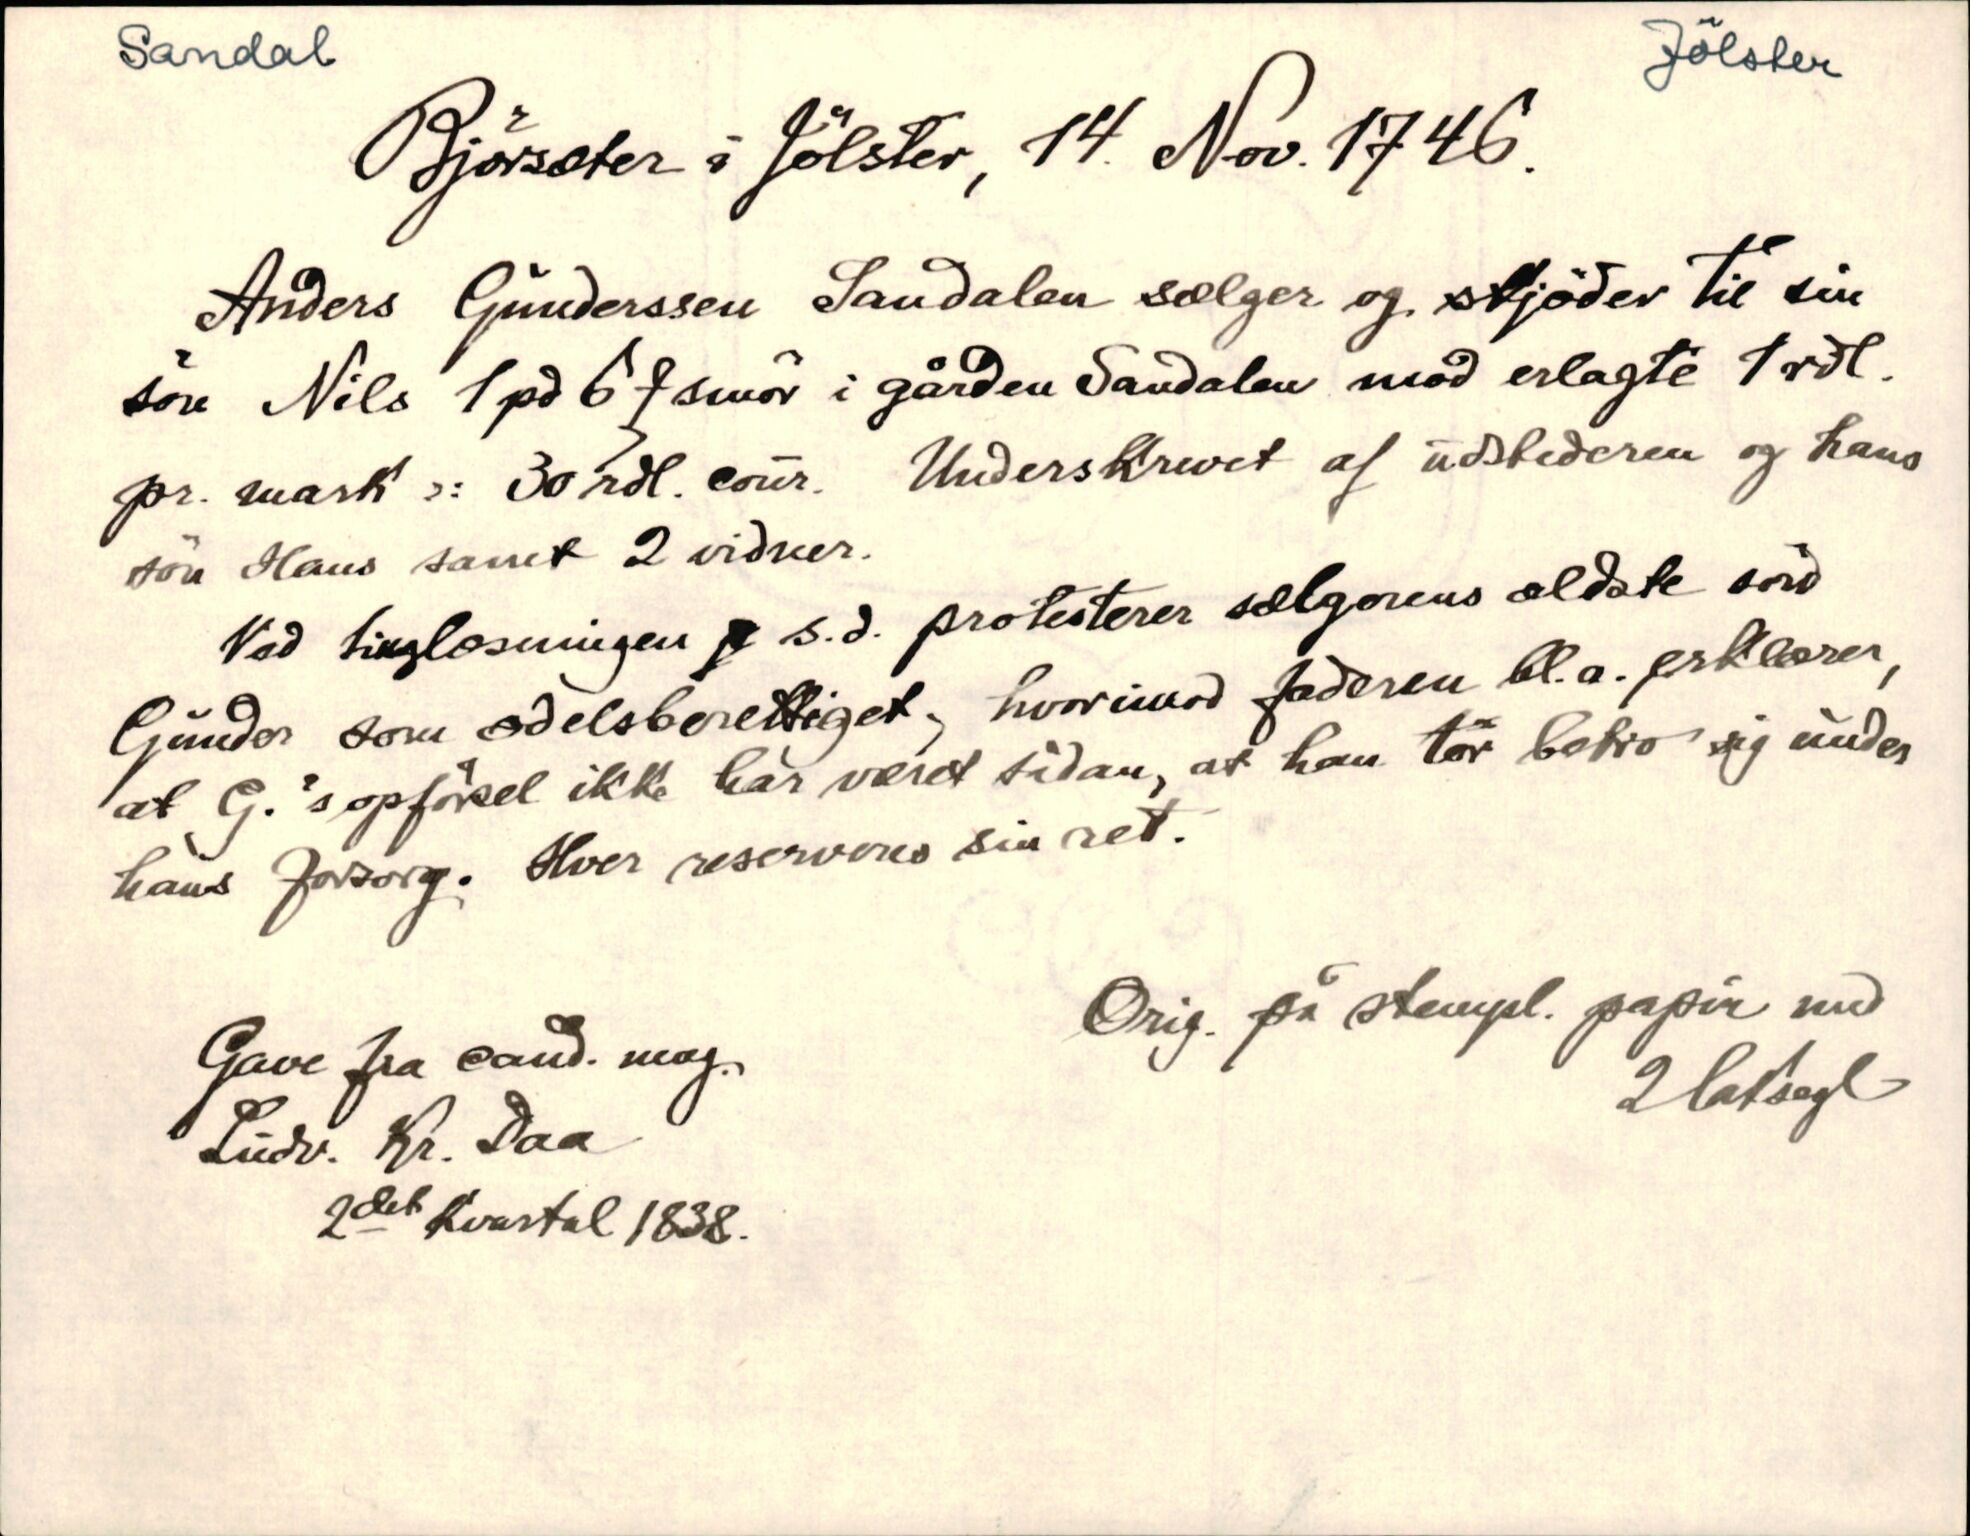 Sandal
Jölster
Björsæter i Jölster, 14. Nov. 1746.
Anders Gunderssen Sandalen sælger og skjöder til sin
sön Nils 1 pd 6 ℔ smör i gården Sandalen mod erlagte 1 rdl.
pr. mark ɔ: 30 rdl. cour. Underskrevet af udstederen og hans
sön Hans samt 2 vidner.
Ved tinglæsningen s. d. protesterer sælgerens ældste sön
Gunder som odelsberettiget, hvorimod faderen bl. a. erklærer,
at G.'s opförsel ikke har været sådan, at han tör betro sig under
hans forsorg. Hver reserveres sin ret.
Orig. på stempl. papir med
2 laksegl
Gave fra cand. mag.
Ludv. Kr. Daa
2det Kvartal 1838.